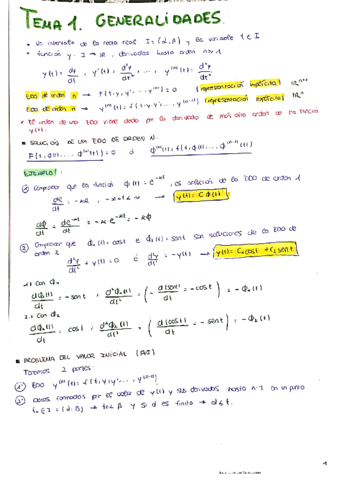 TEMA 1. GENERALIDADES.
• Un intervalo de la recta real I = (α, β) y la variable t ∈ I
• función y: I → ℝ, derivadas hasta orden n ≥ 1
y'(t) = dy/dt, y''(t) = d²y/dt², ..., y⁽ⁿ⁾(t) = dⁿy/dtⁿ
EDO de orden n → F(t, y, y', ... y⁽ⁿ⁾) = 0 (representación implícita)
EDO de orden n → y⁽ⁿ⁾(t) = f(t, y, y', ... y⁽ⁿ⁻¹⁾) (representación explícita)
* El orden de una EDO viene dado por la derivada de más alto orden de la función
y(t).
■ SOLUCIÓN DE UNA EDO DE ORDEN N.
F(t, ϕ(t), ... ϕ⁽ⁿ⁾(t)) = 0 ó ϕ⁽ⁿ⁾(t) = f(t, ϕ(t), ... ϕ⁽ⁿ⁻¹⁾(t))
EJEMPLO:
① Comprobar que la función ϕ(t) = e⁻ᵅᵗ, es solución de la EDO de orden 1
② Comprobar que ϕ₁(t) = cost e ϕ₂(t) = sent son soluciones de la EDO de
orden 2 d²y/dt² + y(t) = 0 ó d²y/dt² = -y(t) → y(t) = C₁cost + C₂sent
2.1 Con ϕ₁
dϕ₁(t)/dt = -sent ; d²ϕ₁(t)/dt² = (- d(sent)/dt = -cost) = -ϕ₁(t)
2.2 Con ϕ₂
dϕ₂(t)/dt = cost ; d²ϕ₂(t)/dt² = (d(cost)/dt = -sent) = -ϕ₂(t)
■ PROBLEMA DEL VALOR INICIAL
Tenemos 2 partes:
①' EDO y⁽ⁿ⁾(t) = f(t, y, y', ... y⁽ⁿ⁻¹⁾)
②' Datos formados por el valor de y(t) y sus derivadas hasta n-1 en un punto
1